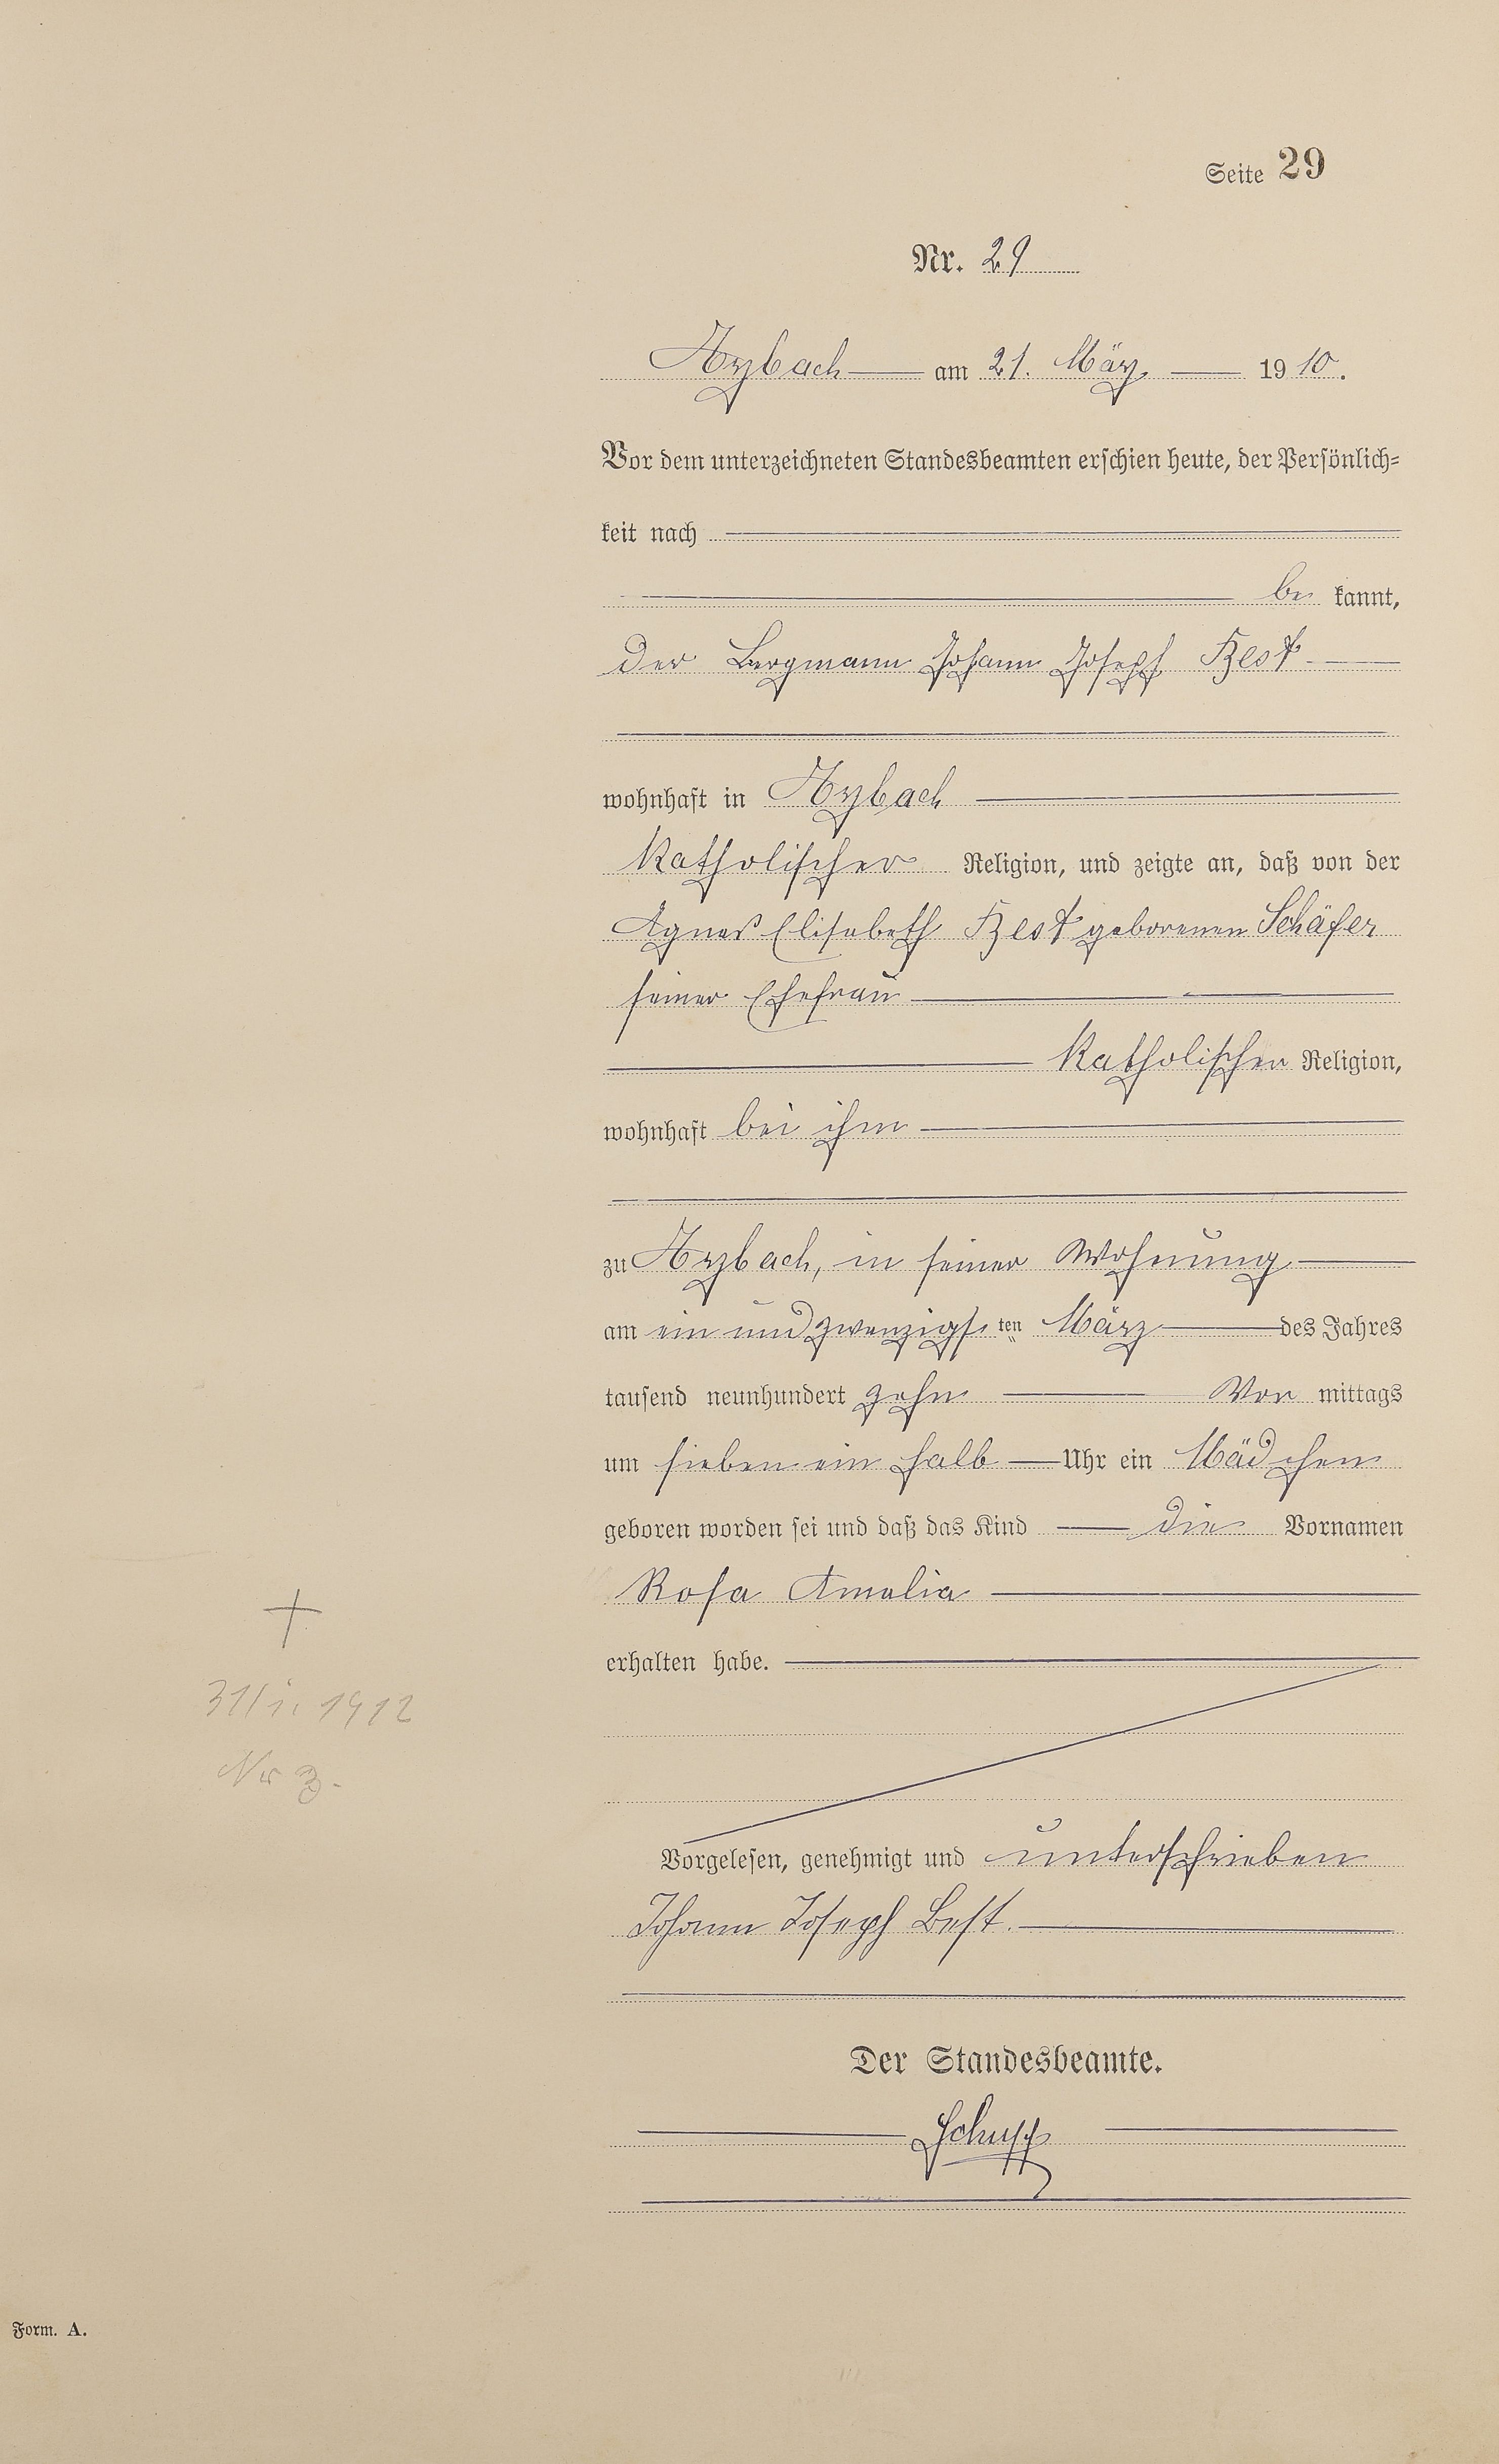 Seite 29
Nr. 29
Arzbach am 21. März 1910.
Vor dem unterzeichneten Standesbeamten erschien heute, der Persönlich-
keit nach
be kannt,
der Bergmann Johann Joseph Best
wohnhaft in Arzbach
Katholischer Religion, und zeigte an, daß von der
Agnes Elisabeth Best geborenen Schäfer
seiner Ehefrau
Katholischer Religion,
wohnhaft bei ihm
zu Arzbach, in seiner Wohnung
am ein und zwanzigsten März des Jahres
tausend neunhundert zehn Vor mittags
um sieben ein halb Uhr ein Mädchen
geboren worden sei und daß das Kind die Vornamen
Rosa Amalia
erhalten habe.
+
31/1. 1912
Nr 3.
Vorgelesen, genehmigt und unterschrieben
Johann Joseph Best.
Der Standesbeamte.
Schupp
Form. A.